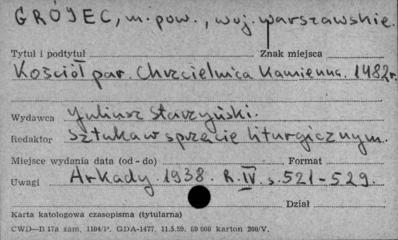 GRÓJEC, m. pow., woj. warszawskie.
Tytuł i podtytuł Znak miejsca
Kościół par. Chrzcielnica kamienna. 1482r.
Wydawca Juliusz Starzyński.
Redaktor Sztuka w sprzęcie liturgicznym.
Miejsce wydania data (od - do) Format
Uwagi Arkady. 1938. R. IV. s. 521-529.
Dział
Karta katologowa czasopisma (tytularna)
CWD—B 17a zam. 1104/P. GDA-1477. 11.5.59. 50 000 karton 200/V.